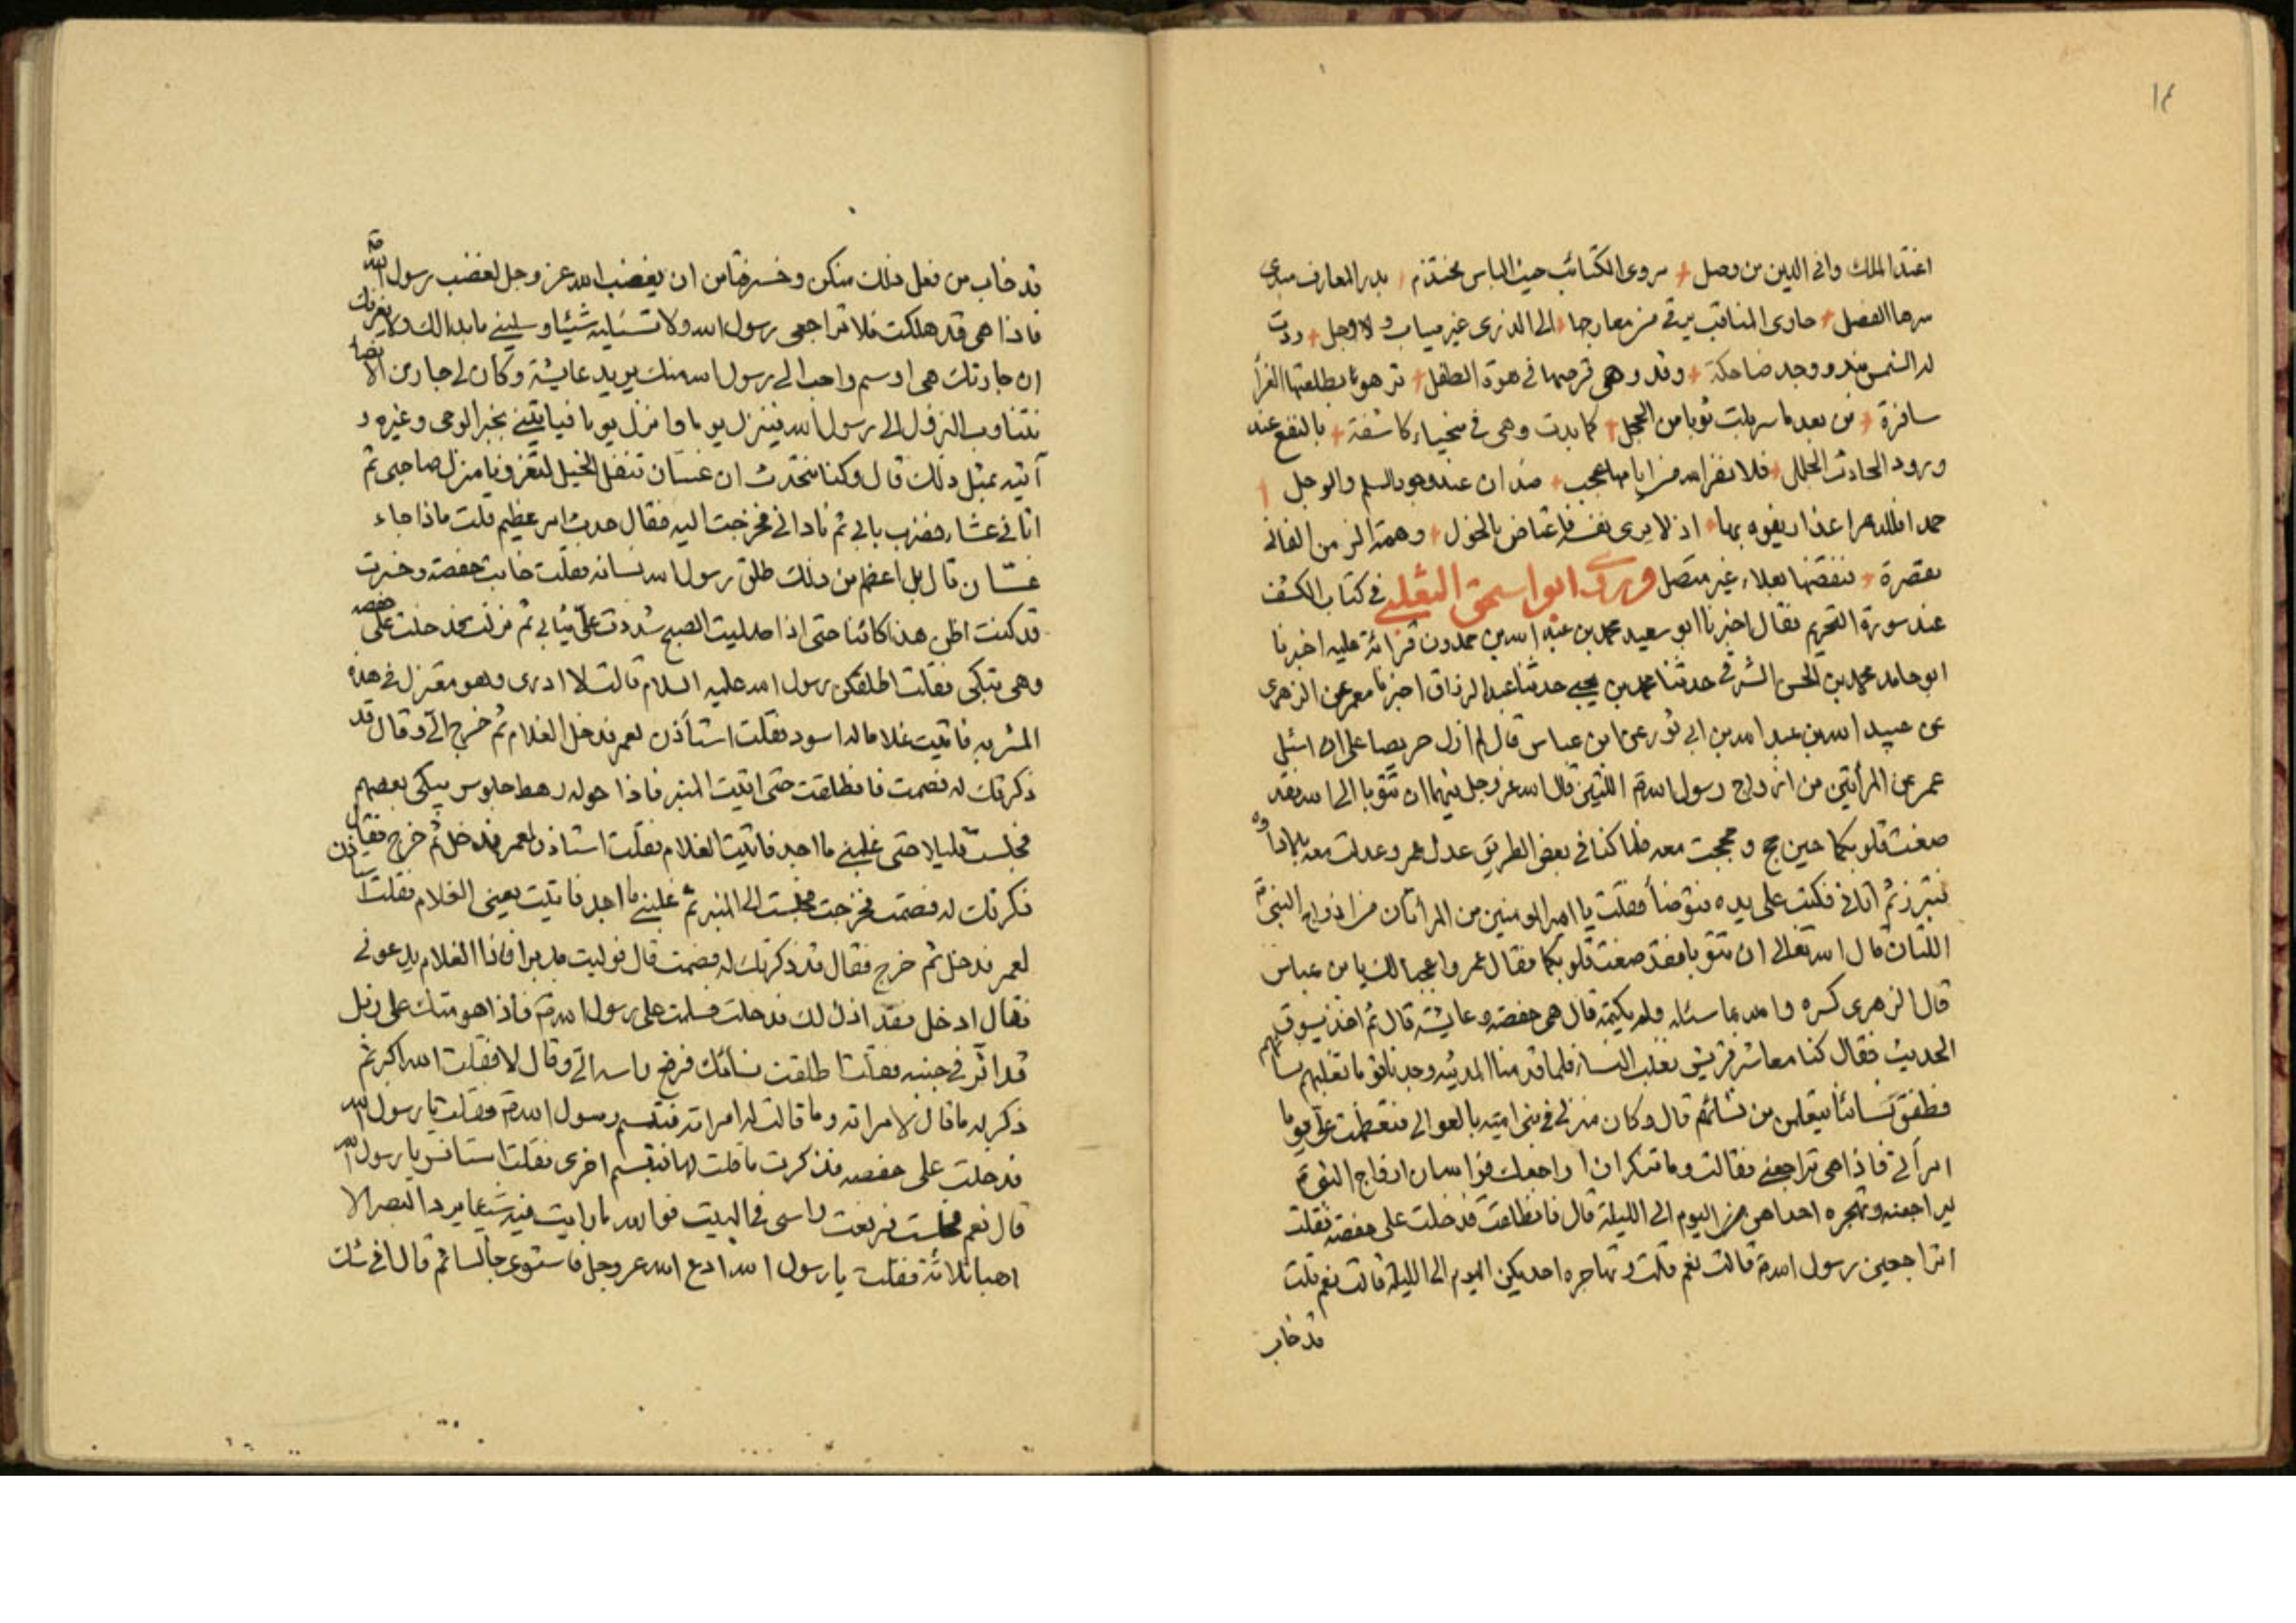 ١٤
اغتذا الملك وافى الدين من وصل مروى الكتائب حيث الباس محتذم بدر المعارف مبدى
سرها الفضل حاوى المناقب يرقى من معارجها الى الذرى غير مياب ولا وجل ردت
له الشمس ووجد ضاحكة وقد وهى قرصها فى هوة الطفل بطلعتها الغرا
سافرة من بعد ما سربلت ثوبا من الخجل كما بدت وهى فى كاشفة بالنفع عند
ورود الحادث الجلل عجب عنده بالسلم والوجل
يفوه بها اذ لا يرى وهمة
مقصرة غير متصل وروى ابو اسحق الثعلبى فى كتاب الكشف
عند سورة التحريم فقال اخبرنا ابو سعيد محمد بن عبد الله بن حمدون قرائة عليه اخبرنا
ابو حامد محمد بن الحسن الشرقى حدثنا محمد بن يحيى حدثنا عبد الرزاق اخبرنا معمر عن الزهرى
عن عبيد الله بن عبد الله بن ابى ثور عن ابن عباس قال لم ازل حريصا على ان اسئل
عمر عن المرأتين من ازواج رسول الله ص اللتين قال الله عز وجل فيهما ان تتوبا الى الله فقد
صغت قلوبكما حين حج وحججت معه فلما كنا فى بعض الطريق عدل عمر وعدلت معه بالاداوه
فتبرز ثم اتانى فسكبت على يده فتوضأ فقلت يا امير المومنين من المرأتان من ازواج النبى ص
اللتان قال الله تعالى ان تتوبا فقد صغت قلوبكما فقال عمر واعجبا لك يا بن عباس
قال الزهرى كره والله ما سئله ولم يكتمه قال هى حفصه وعايشه قال ثم اخذ يسوق
الحديث فقال كنا معاشر قريش نغلب النساء فلما قدمنا المدينه وجدنا قوما تغلبهم نساؤهم
فطفق نسائنا يتعلمن من نسائهم قال وكان منزلى فى بنى اميه بالعوالى فتغضبت على يوما
امرأتى فاذا هى تراجعنى فقالت وما تنكر ان اراجعك فوالله ان ازواج النبى ص
ليراجعنه وتهجره احداهن اليوم الى الليلة قال فانطلقت فدخلت على حفصه فقلت
اتراجعين رسول الله ص قالت نعم قلت وتهاجره احديكن اليوم الى الليلة قالت نعم قلت
قد خاب
قد خاب من فعل ذلك منكن وخسر فتامن ان يغضب الله عز وجل لغضب رسول الله ص
فاذا هى قد هلكت فلا تراجعى رسول الله ولا تسئليه شيئا وسلينى ما بدا لك ولا يغرنك
ان جارتك هى اوسم واحب الى رسول الله منك يريد عايشة وكان لى جار من الانصار
نتناوب النزول الى رسول الله فينزل يوما وانزل يوما فياتينى بخبر الوحى وغيره و
آتيه بمثل ذلك قال وكنا نتحدث ان غسان تنعل الخيل لتغزونا منزل صاحبى ثم
اتانى عشاء فضرب بابى ثم نادانى فخرجت اليه فقال حدث امر عظيم قلت ماذا جاء
غسّان قال بل اعظم من ذلك طلق رسول الله نسائه فقلت خابت حفصه وخسرت
قد كنت اظن هذا كائنا حتى اذا صليت الصبح شددت علىّ ثيابى ثم نزلت فدخلت على حفصه
وهى تبكى فقلت اطلقكن رسول الله عليه السلام قالت لا ادرى وهو معتزل فى هذه
المشربه فاتيت غلاما له اسود فقلت استأذن لعمر فدخل الغلام ثم خرج الىّ وقال قد
ذكرتك له فصمت فانطلقت حتى اتيت المنبر فاذا حوله رهط جلوس يبكى بعضهم
فجلست قليلا حتى غلبنى ما اجد فاتيت الغلام فقلت استاذن لعمر فدخل ثم خرج فقال
ذكرتك له فصمت فخرجت فجلست الى المنبر ثم غلبنى ما اجد فاتيت يعنى الغلام فقلت استاذن
لعمر فدخل ثم خرج فقال قد ذكرتك له فصمت قال فوليت مدبرا فاذا الغلام يدعونى
فقال ادخل فقد اذن لك فدخلت فسلمت على رسول الله ص فاذا هو متك على رمل
قد اثر فى جنبه فقلت اطلقت نسائك فرفع راسه الىّ وقال لا فقلت الله اكبر ثم
ذكر له ما قال لامراته وما قالت له امراته فتبسم رسول الله ص فقلت يا رسول الله
فدخلت على حفصه فذكرت ما قلت لها فتبسم اخرى فقلت استانس يا رسول الله
قال نعم فجلست فرفعت راسى فى البيت فوالله ما رايت فيه شيئا يرد البصر الا
اهبا ثلاثة فقلت يا رسول الله ادع الله عز وجل فاستوى جالسا ثم قال افى شك